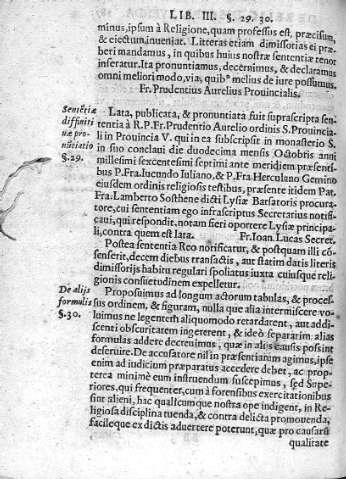 LIB. III. §. 29. 30.
minus, ipsum à Religione, quam professus est, præcisum,
& eiectum, inueniat. Litteras etiam dimissorias ei præ-
beri mandamus, in quibus huius nostræ sententiæ tenor
inseratur. Ita pronuntiamus, decernimus, & declaramus
omni meliori modo, via, quibꝰ melius de iure possumus.
Fr. Prudentius Aurelius Prouincialis.
Sentētiæ
diffiniti
uæ pro-
nūtiatio
§. 29.
Lata, publicata, & pronuntiata fuit suprascripta sen-
tentia à R. P. Fr. Prudentio Aurelio ordinis S. Prouincia-
li in Prouincia V. qui in ea subscripsit in monasterio S.
in suo conclaui die duodecima mensis Octobris anni
millesimi sexcentesimi septimi ante meridiem præsenti-
bus P. Fra. Iucundo Iuliano, & P. Fra. Herculano Gemino
eiusdem ordinis religiosis testibus, præsente itidem Pat.
Fra. Lamberto Sosthene dicti Lysiæ Barsatoris procura-
tore, cui sententiam ego infrascriptus Secretarius notifi-
caui, qui respondit, notam fieri oportere Lysiæ principa-
li, contra quem est lata. Fr. Ioan. Lucas Secret.
Postea sententia Reo notificatur, & postquam illi co̅-
senserit, decem diebus transactis, aut statim datis literis
dimissorijs habitu regulari spoliatus iuxta cuiusque reli-
gionis consuetudinem expelletur.
De alijs
formulis
§. 30.
Proposuimus ad longum actorum tabulas, & proces-
sus ordinem, & figuram, nulla que alia intermiscere vo-
luimus ne legentem aliquomodo retardarent, aut addi-
scenti obscuritatem ingererent, & ideò separatim alias
formulas addere decreuimus, quæ in alijs causis possint
deseruire. De accusatore nil in præsentiarum agimus, ipse
enim ad iudicium præparatus accedere debet, ac prop-
terea minimè eum instruendum suscepimus, sed Supe-
riores, qui frequenter, cùm à forensibus exercitationibus
sint alieni, hac qualicumque nostra ope indigent, in Re-
ligiosa disciplina tuenda, & contra delicta promouenda,
facileque ex dictis aduertere poterunt, quæ pro causarū
qualitate